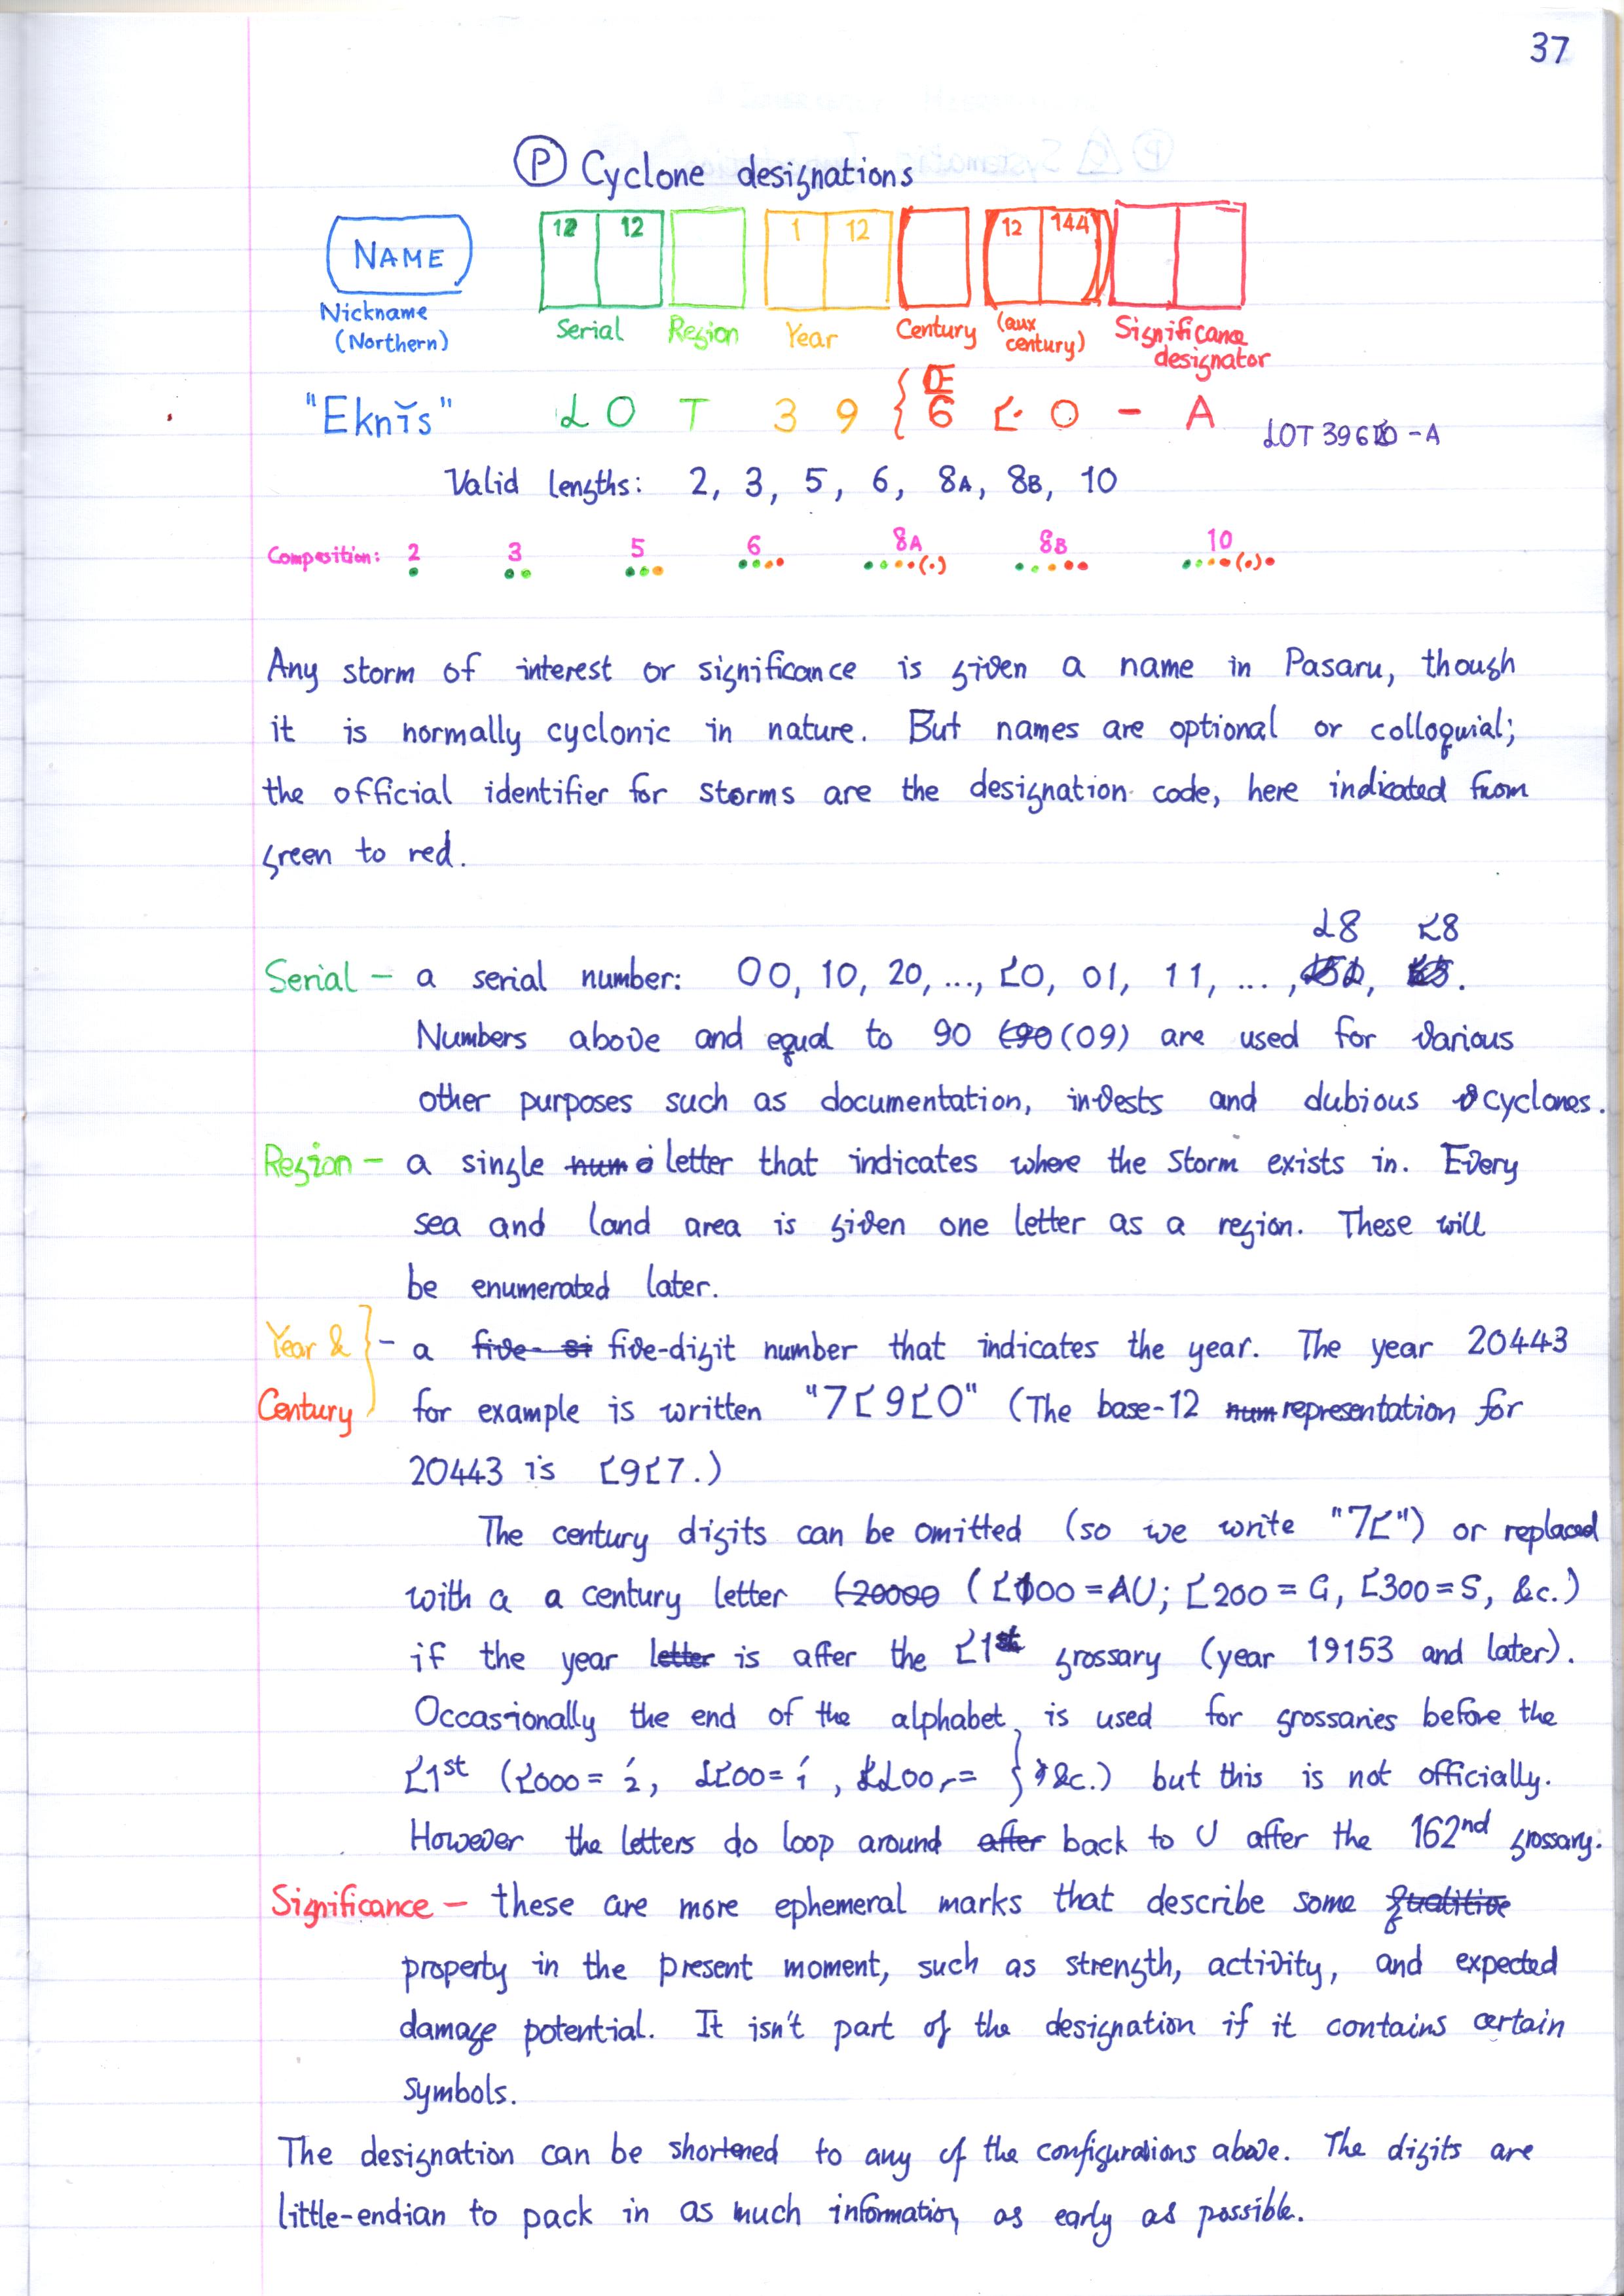 37
Ⓟ Cyclone designations
NAME 12 12 1 12 12 144
Nickname (Northern) Serial Region Year Century (aux century) Significance designator
"Eknĭs" ↊OT 39 { 6 ↋0 - A
↊OT 396↋0 -A
Valid lengths: 2, 3, 5, 6, 8A, 8B, 10
Composition: 2 3 5 6 8A 8B 10
Any storm of interest or significance is given a name in Pasaru, though
it is normally cyclonic in nature. But names are optional or colloquial;
the official identifier for storms are the designation code, here indicated from
green to red.
↊8 ↋8
Serial – a serial number: 00, 10, 20, ..., ↋0, 01, 11, ... , , .
Numbers above and equal to 90 (09) are used for various
other purposes such as documentation, invests and dubious cyclones.
Region – a single letter that indicates where the storm exists in. Every
sea and land area is given one letter as a region. These will
be enumerated later.
Year & } – a five-digit number that indicates the year. The year 20443
Century for example is written "7↋9↋0" (The base-12 representation for
20443 is ↋9↋7.)
The century digits can be omitted (so we write "7↋") or replaced
with a a century letter (↋100 = AU; ↋200 = G, ↋300 = S, &c.)
if the year is after the ↋1st grossary (year 19153 and later).
Occasionally the end of the alphabet is used for grossaries before the
↋1st (↋000 = &c.) but this is not officially.
However the letters do loop around back to U after the 162nd grossary.
Significance – these are more ephemeral marks that describe some
property in the present moment, such as strength, activity, and expected
damage potential. It isn't part of the designation if it contains certain
symbols.
The designation can be shortened to any of the configurations above. The digits are
little-endian to pack in as much information as early as possible.